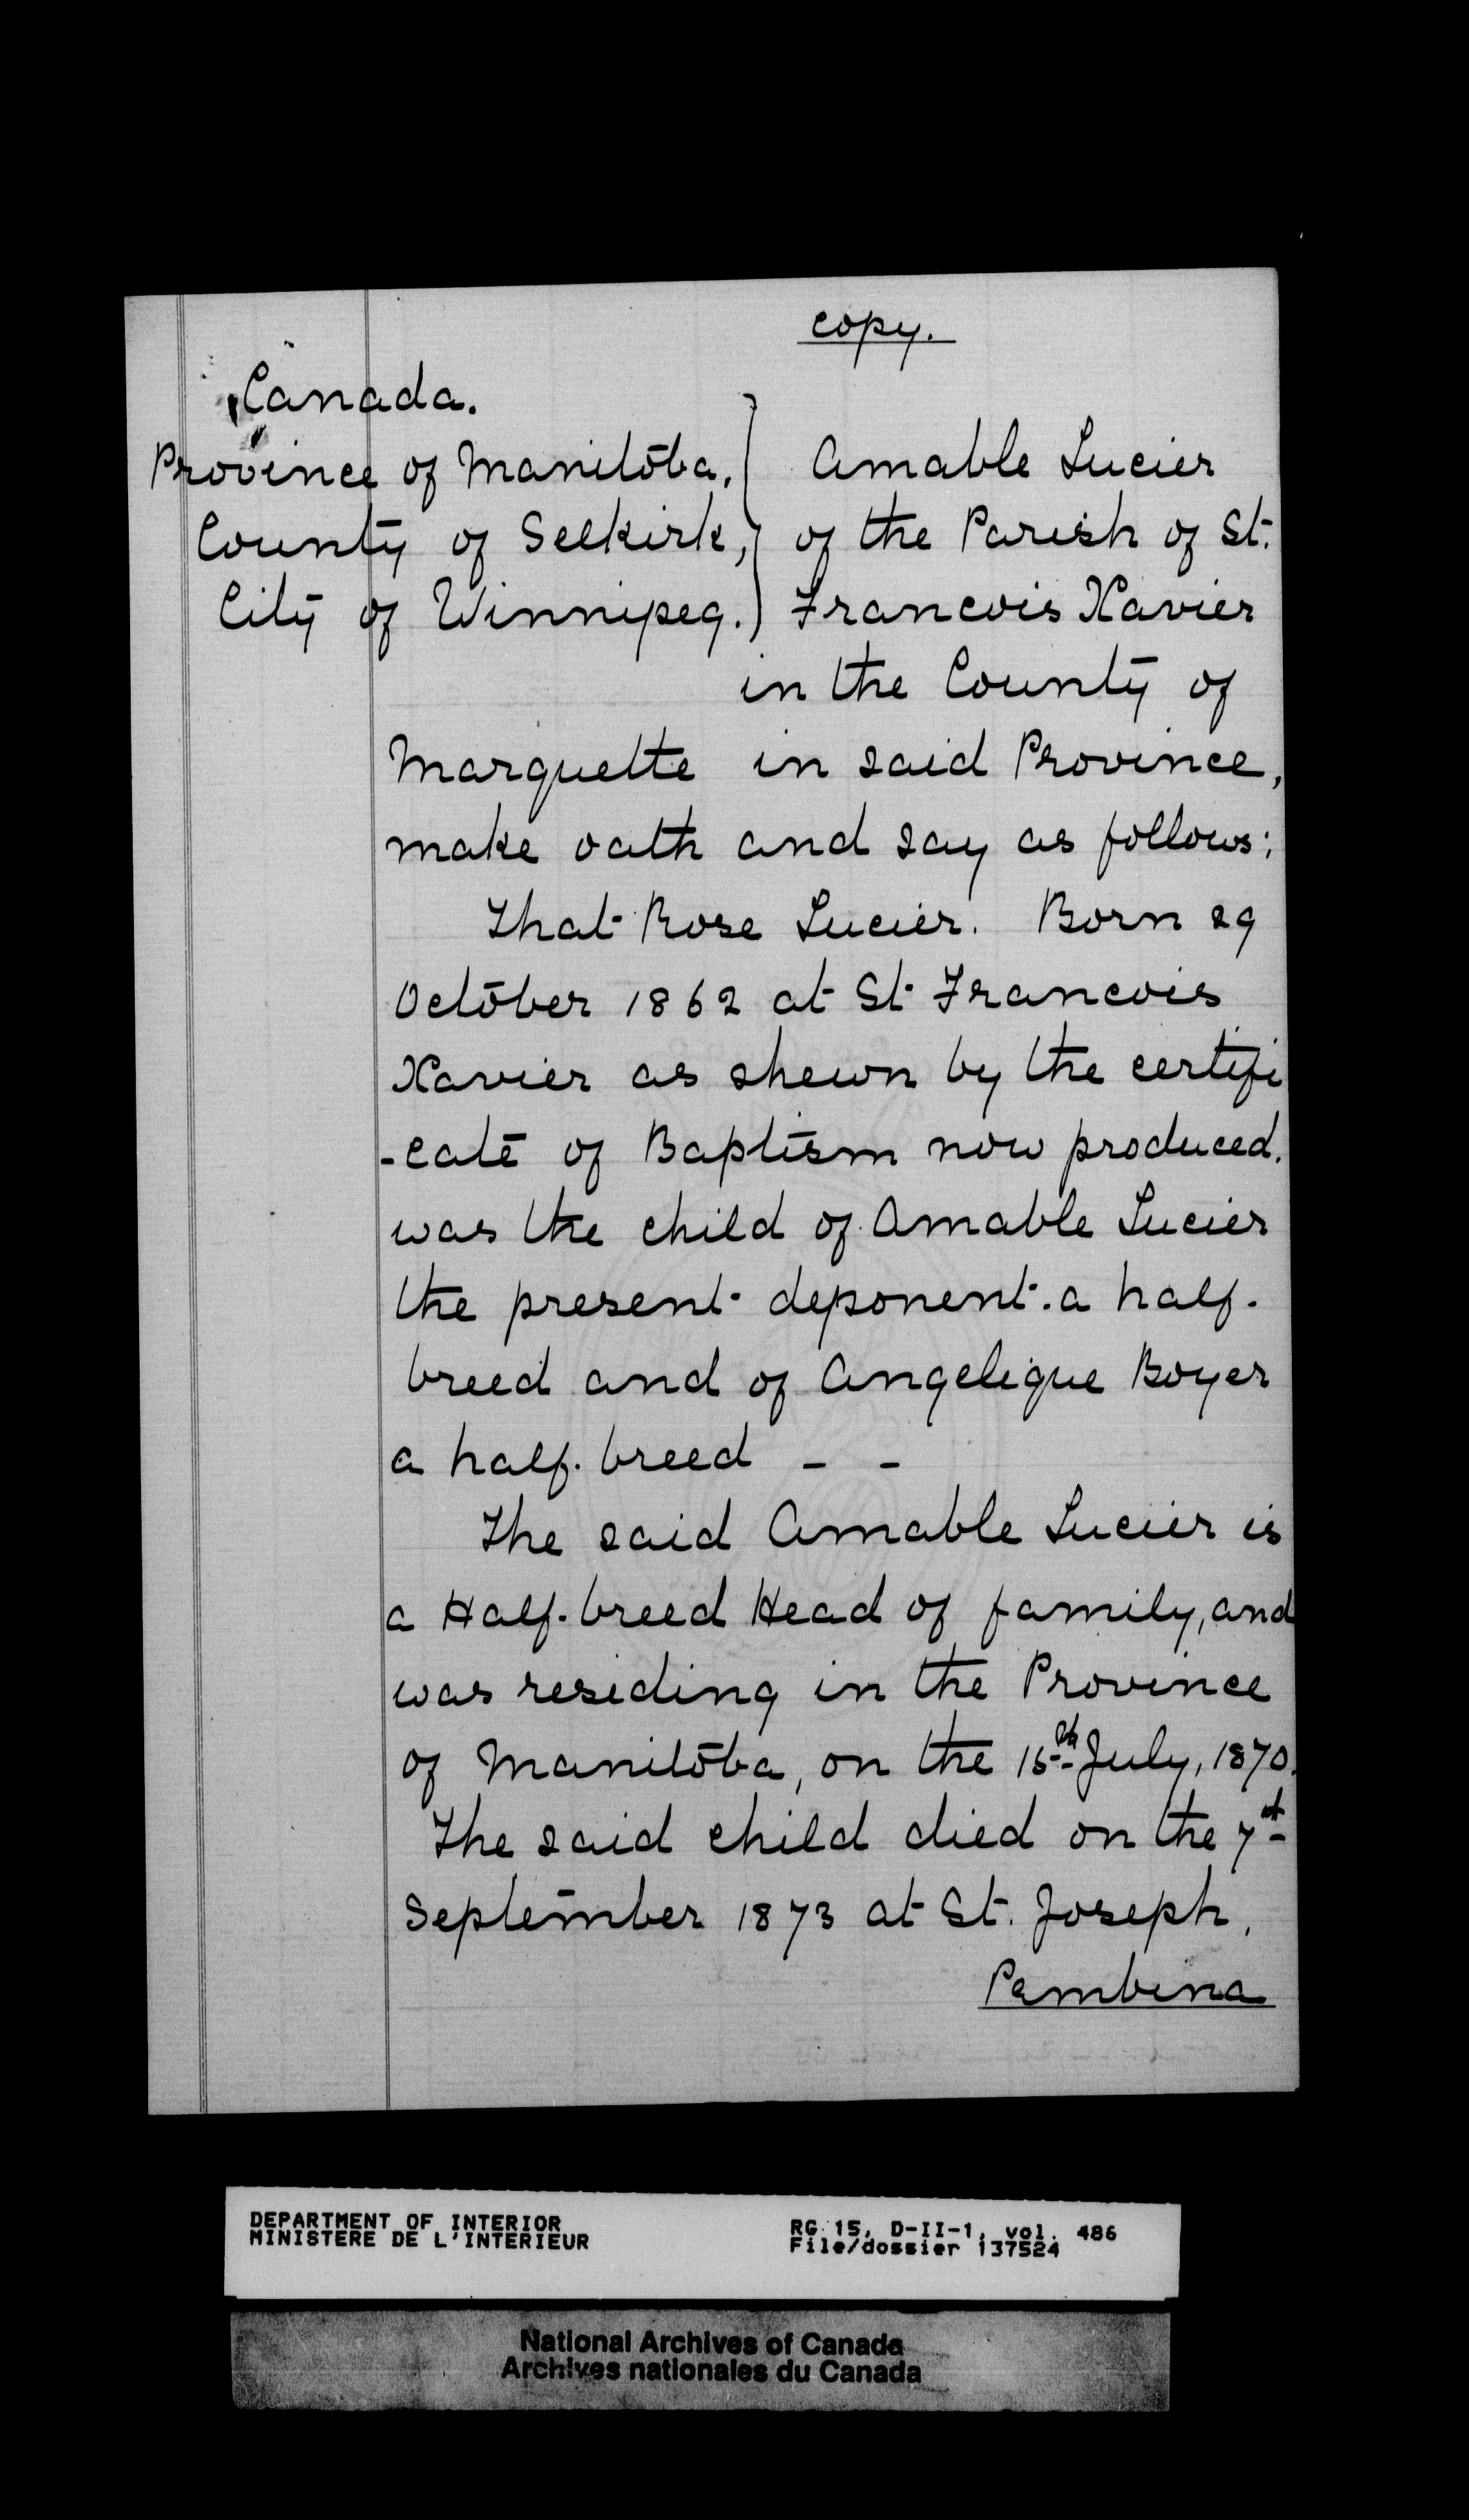 copy.
Canada.
Province of Manitoba, } Amable Lucier
County of Selkirk, } of the Parish of St.
City of Winnipeg. } Francois Xavier
in the County of
Marquette in said Province,
make oath and say as follows:
That Rose Lucier. Born 29
October 1862 at St Francois
Xavier as shewn by the certifi
-cate of Baptism now produced.
was the child of Amable Lucier
the present deponent. a half-
breed and of Angelique Boyer
a half-breed - -
The said Amable Lucier is
a Half-breed Head of family, and
was residing in the Province
of Manitoba, on the 15th July, 1870.
The said child died on the 7th
September 1873 at St. Joseph,
Pembina
DEPARTMENT OF INTERIOR
MINISTERE DE L'INTERIEUR
RG 15, D-II-1, vol. 486
File/dossier 137524
National Archives of Canada
Archives nationales du Canada